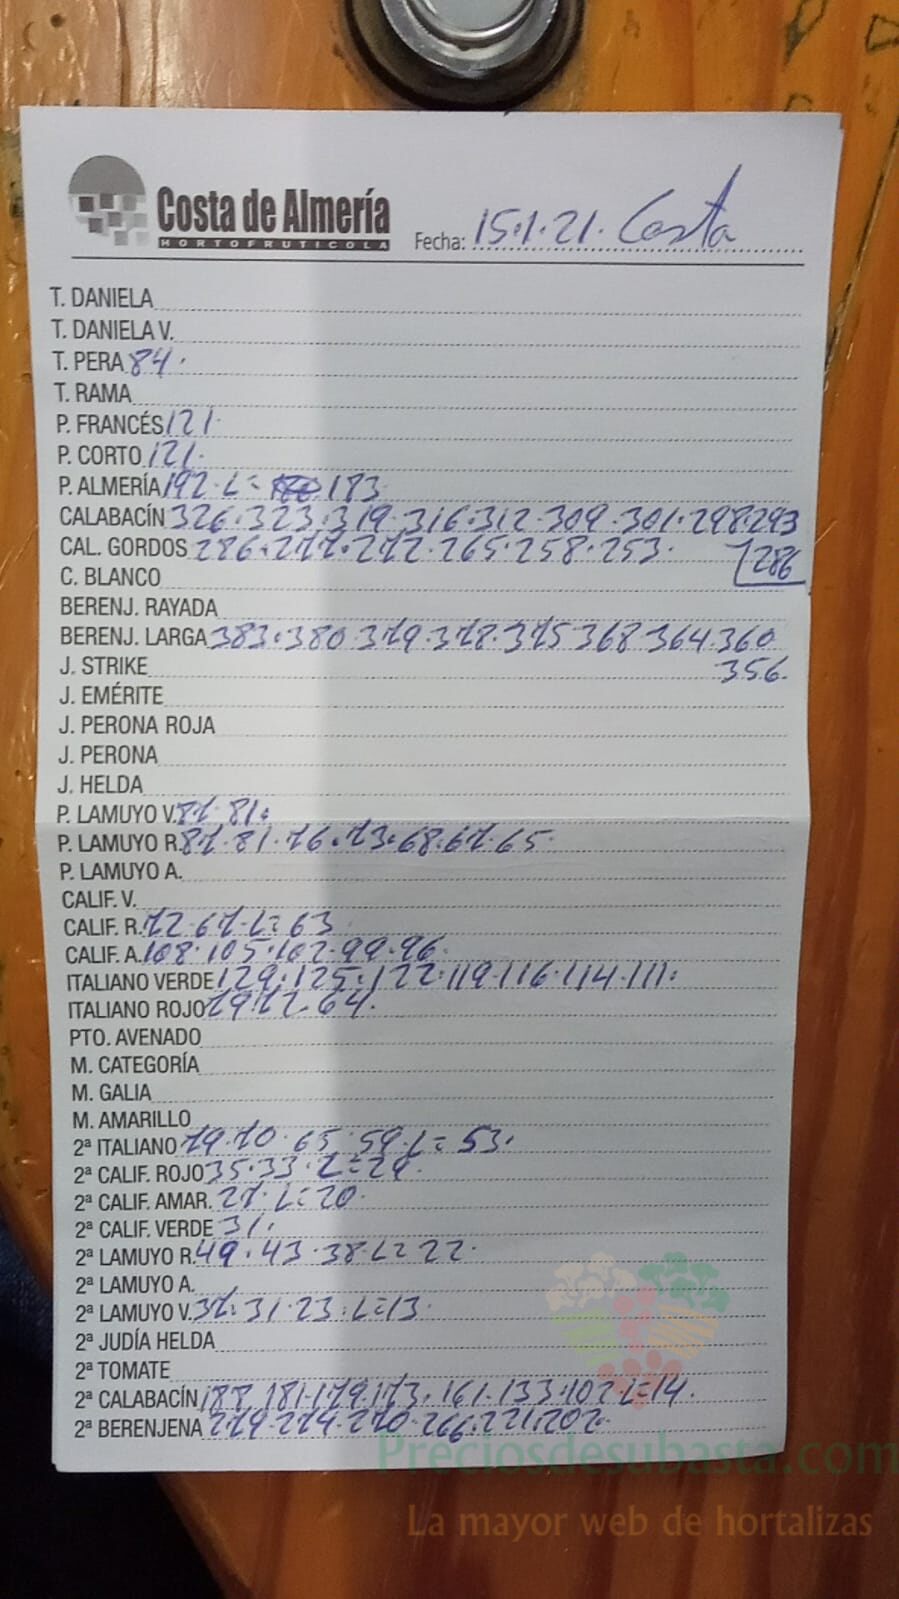 Costa de Almería
HORTOFRUTICOLA
Fecha: 15.1.21. Costa
T. DANIELA
T. DANIELA V.
T. PERA 84.
T. RAMA
P. FRANCÉS 121.
P. CORTO 121.
P. ALMERÍA 192. L= 183
CALABACÍN 326.323.319.316.312.309.301.298.293
CAL. GORDOS 286.277.272.265.258.253. 286
C. BLANCO
BERENJ. RAYADA
BERENJ. LARGA 383.380 379.378.375 368 364.360
J. STRIKE 356.
J. EMÉRITE
J. PERONA ROJA
J. PERONA
J. HELDA
P. LAMUYO V. 87. 81.
P. LAMUYO R. 87.81.76.73.68.67.65.
P. LAMUYO A.
CALIF. V.
CALIF. R. 72.67.L=63
CALIF. A. 108.105.102.99.96.
ITALIANO VERDE 129.125.122.119.116.114.111.
ITALIANO ROJO 79.77.64.
PTO. AVENADO
M. CATEGORÍA
M. GALIA
M. AMARILLO
2ª ITALIANO 79.70.65.59.L=53.
2ª CALIF. ROJO 35.33.L=29.
2ª CALIF. AMAR. 27. L=20.
2ª CALIF. VERDE 31.
2ª LAMUYO R. 49.43.38.L=22.
2ª LAMUYO A.
2ª LAMUYO V. 37.31.23.L=13.
2ª JUDÍA HELDA
2ª TOMATE
2ª CALABACÍN 188.181.179.173.161.133.102.L=14.
2ª BERENJENA 279.274.270.266.221.202.
Preciosdesubasta.com
La mayor web de hortalizas